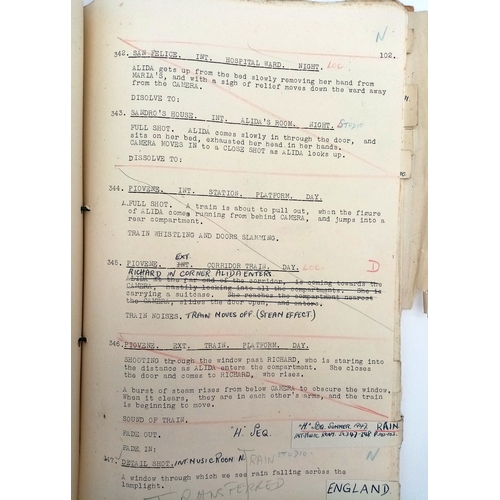 N
102.
342. SAN FELICE. INT. HOSPITAL WARD. NIGHT. LOC.
ALIDA gets up from the bed slowly removing her hand from
MARIA'S, and with a sigh of relief moves down the ward away
from the CAMERA.
DISOLVE TO:
343. SANDRO'S HOUSE. INT. ALIDA'S ROOM. NIGHT. STUDIO
FULL SHOT. ALIDA comes slowly in through the door, and
sits on her bed, exhausted her head in her hands.
CAMERA MOVES IN to a CLOSE SHOT as ALIDA looks up.
DISSOLVE TO:
344. PIOVENE. INT. STATION. PLATFORM. DAY.
A.FULL SHOT. A train is about to pull out, when the figure
of ALIDA comes running from behind CAMERA, and jumps into a
rear compartment.
TRAIN WHISTLING AND DOORS SLAMMING.
EXT.
345. PIOVENE. INT. CORRIDOR TRAIN. DAY. LOC. D
RICHARD IN CORNER ALIDA ENTERS
ALIDA at the far end of the corridor, is coming towards the
CAMERA, hastily looking into all the compartments. She is
carrying a suitcase. She reaches the compartment nearest
the CAMERA, slides the door open, and enters.
TRAIN NOISES. TRAIN MOVES OFF (STEAM EFFECT)
346. PIOVENE. EXT. TRAIN. PLATFORM. DAY.
SHOOTING through the window past RICHARD, who is staring into
the distance as ALIDA enters the compartment. She closes
the door and comes to RICHARD, who rises.
A burst of steam rises from below CAMERA to obscure the window.
When it clears, they are in each other's arms, and the train
is beginning to move.
SOUND OF TRAIN.
FADE OUT. "H" SEQ.
"H" SEQ. SUMMER 1947. RAIN
FADE IN:
347. DETAIL SHOT. INT MUSIC ROOM N. RAIN STUDIO N
A window through which we see rain falling across the
lamplight.
TRANSFERRED
ENGLAND